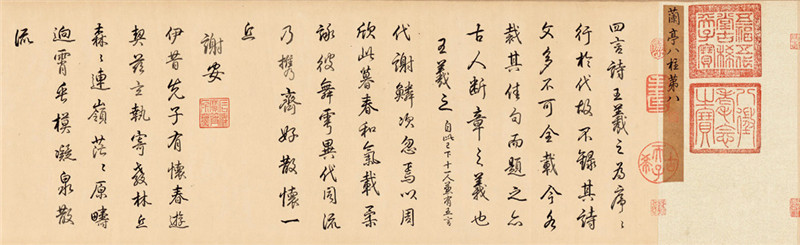 五福五代堂古稀天子寶
八徵耄念之寶
蘭亭八柱第八
四言詩王羲之為序〻
行於代故不錄其詩
文多不可全載今各
裁其佳句而題之亦
古人斷章之義也
王羲之 自此已下十一人並有五言
代謝鱗次忽焉以周
欣此暮春和氣載柔
詠彼舞雩異代同流
乃攜齊好散懷一
丘
謝安
伊昔先子有懷春遊
契茲言執寄敖林丘
森〻連嶺茫〻原疇
迥霄垂模凝泉散
流